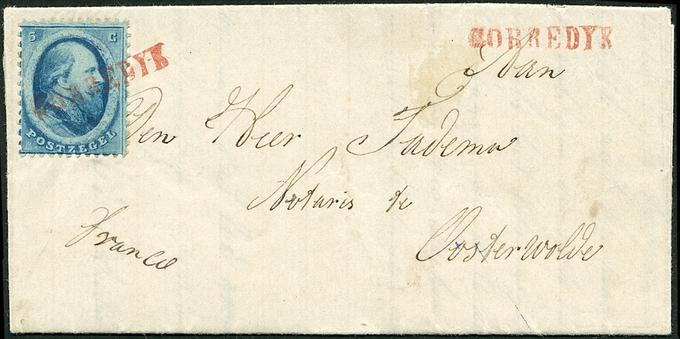 5 C
POSTZEGEL
GORREDYK
GORREDYK
Aan
Den Heer Tadema
Notaris te
Oosterwolde
Franco